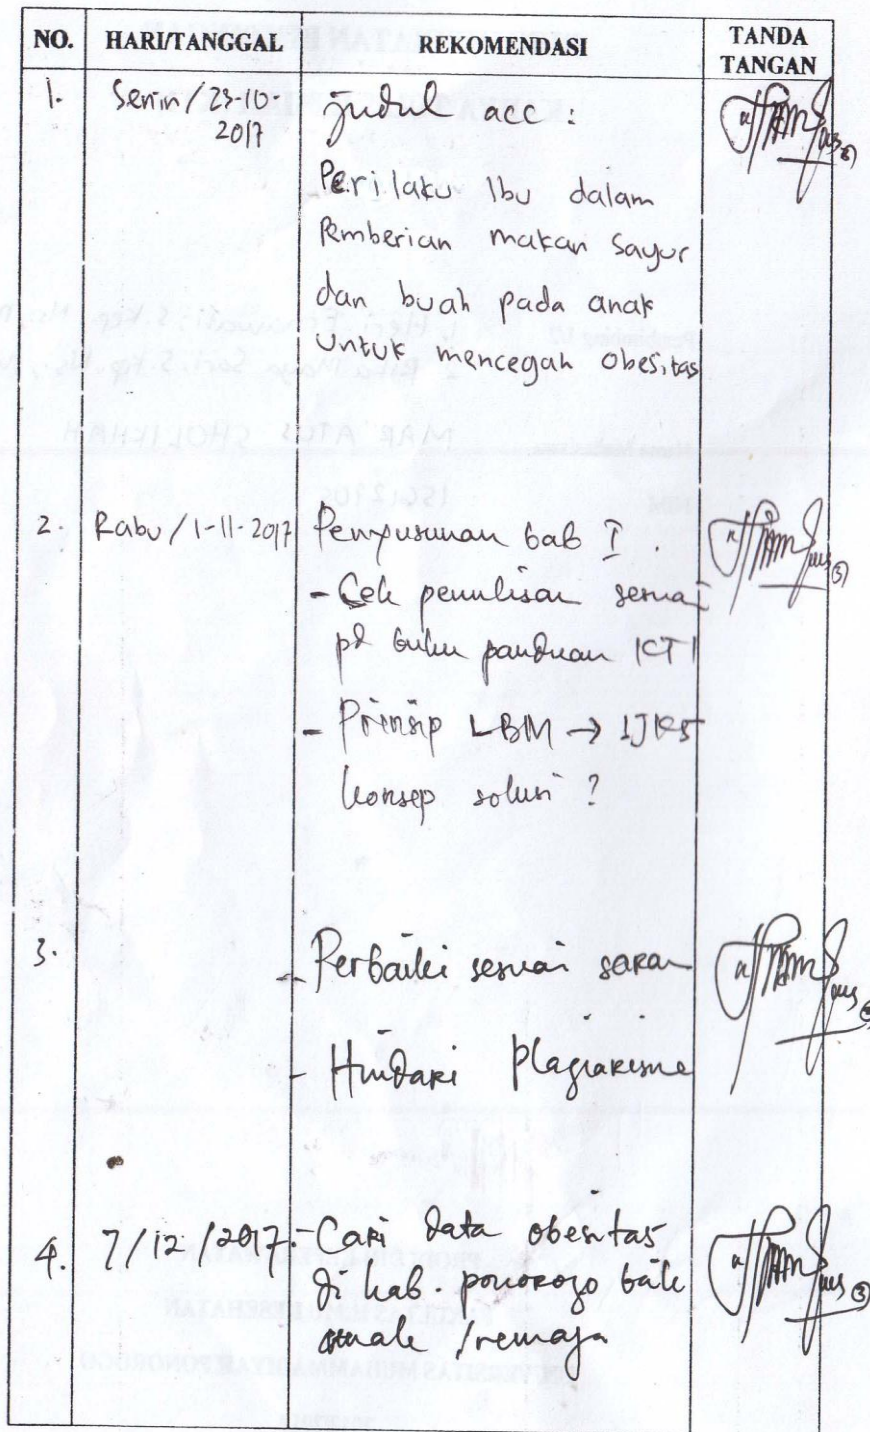 NO. HARI/TANGGAL REKOMENDASI TANDA TANGAN
1. Senin / 23-10- Judul acc :
2017
Perilaku Ibu dalam
Pemberian makan Sayur
dan buah pada anak
untuk mencegah Obesitas
2. Rabu / 1-11-2017 Penyusunan bab I.
- Cek penulisan sesuai
pd buku panduan KTI
- Prinsip LBM → IJKS
konsep solusi ?
3. - Perbaiki sesuai saran
- Hindari Plagiarisme
4. 7/12/2017. - Cari data obesitas
di kab. ponorogo baik
/remaja